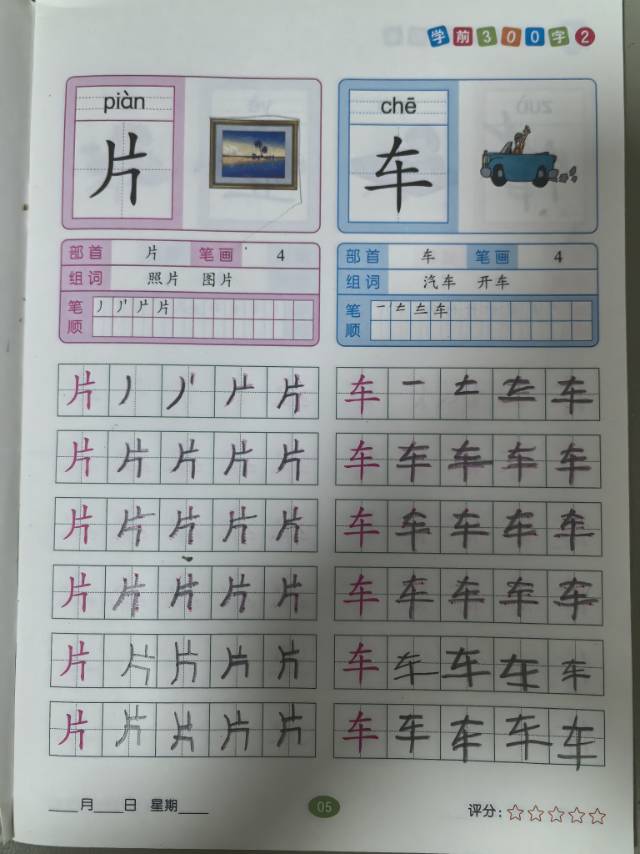 学前300字2
piàn
片
chē
车
部首 片 笔画 4
组词 照片 图片
笔顺 丿 丿丨 片
部首 车 笔画 4
组词 汽车 开车
笔顺 一 车
片 丿 片
片 片 片 片 片
片 片 片 片 片
片 片 片 片 片
片 片 片 片 片
片 片 片 片 片
车 一 车
车 车 车 车 车
车 车 车 车 车
车 车 车 车 车
车 车 车 车 车
车 车 车 车 车
____月____日 星期____
05
评分:☆☆☆☆☆